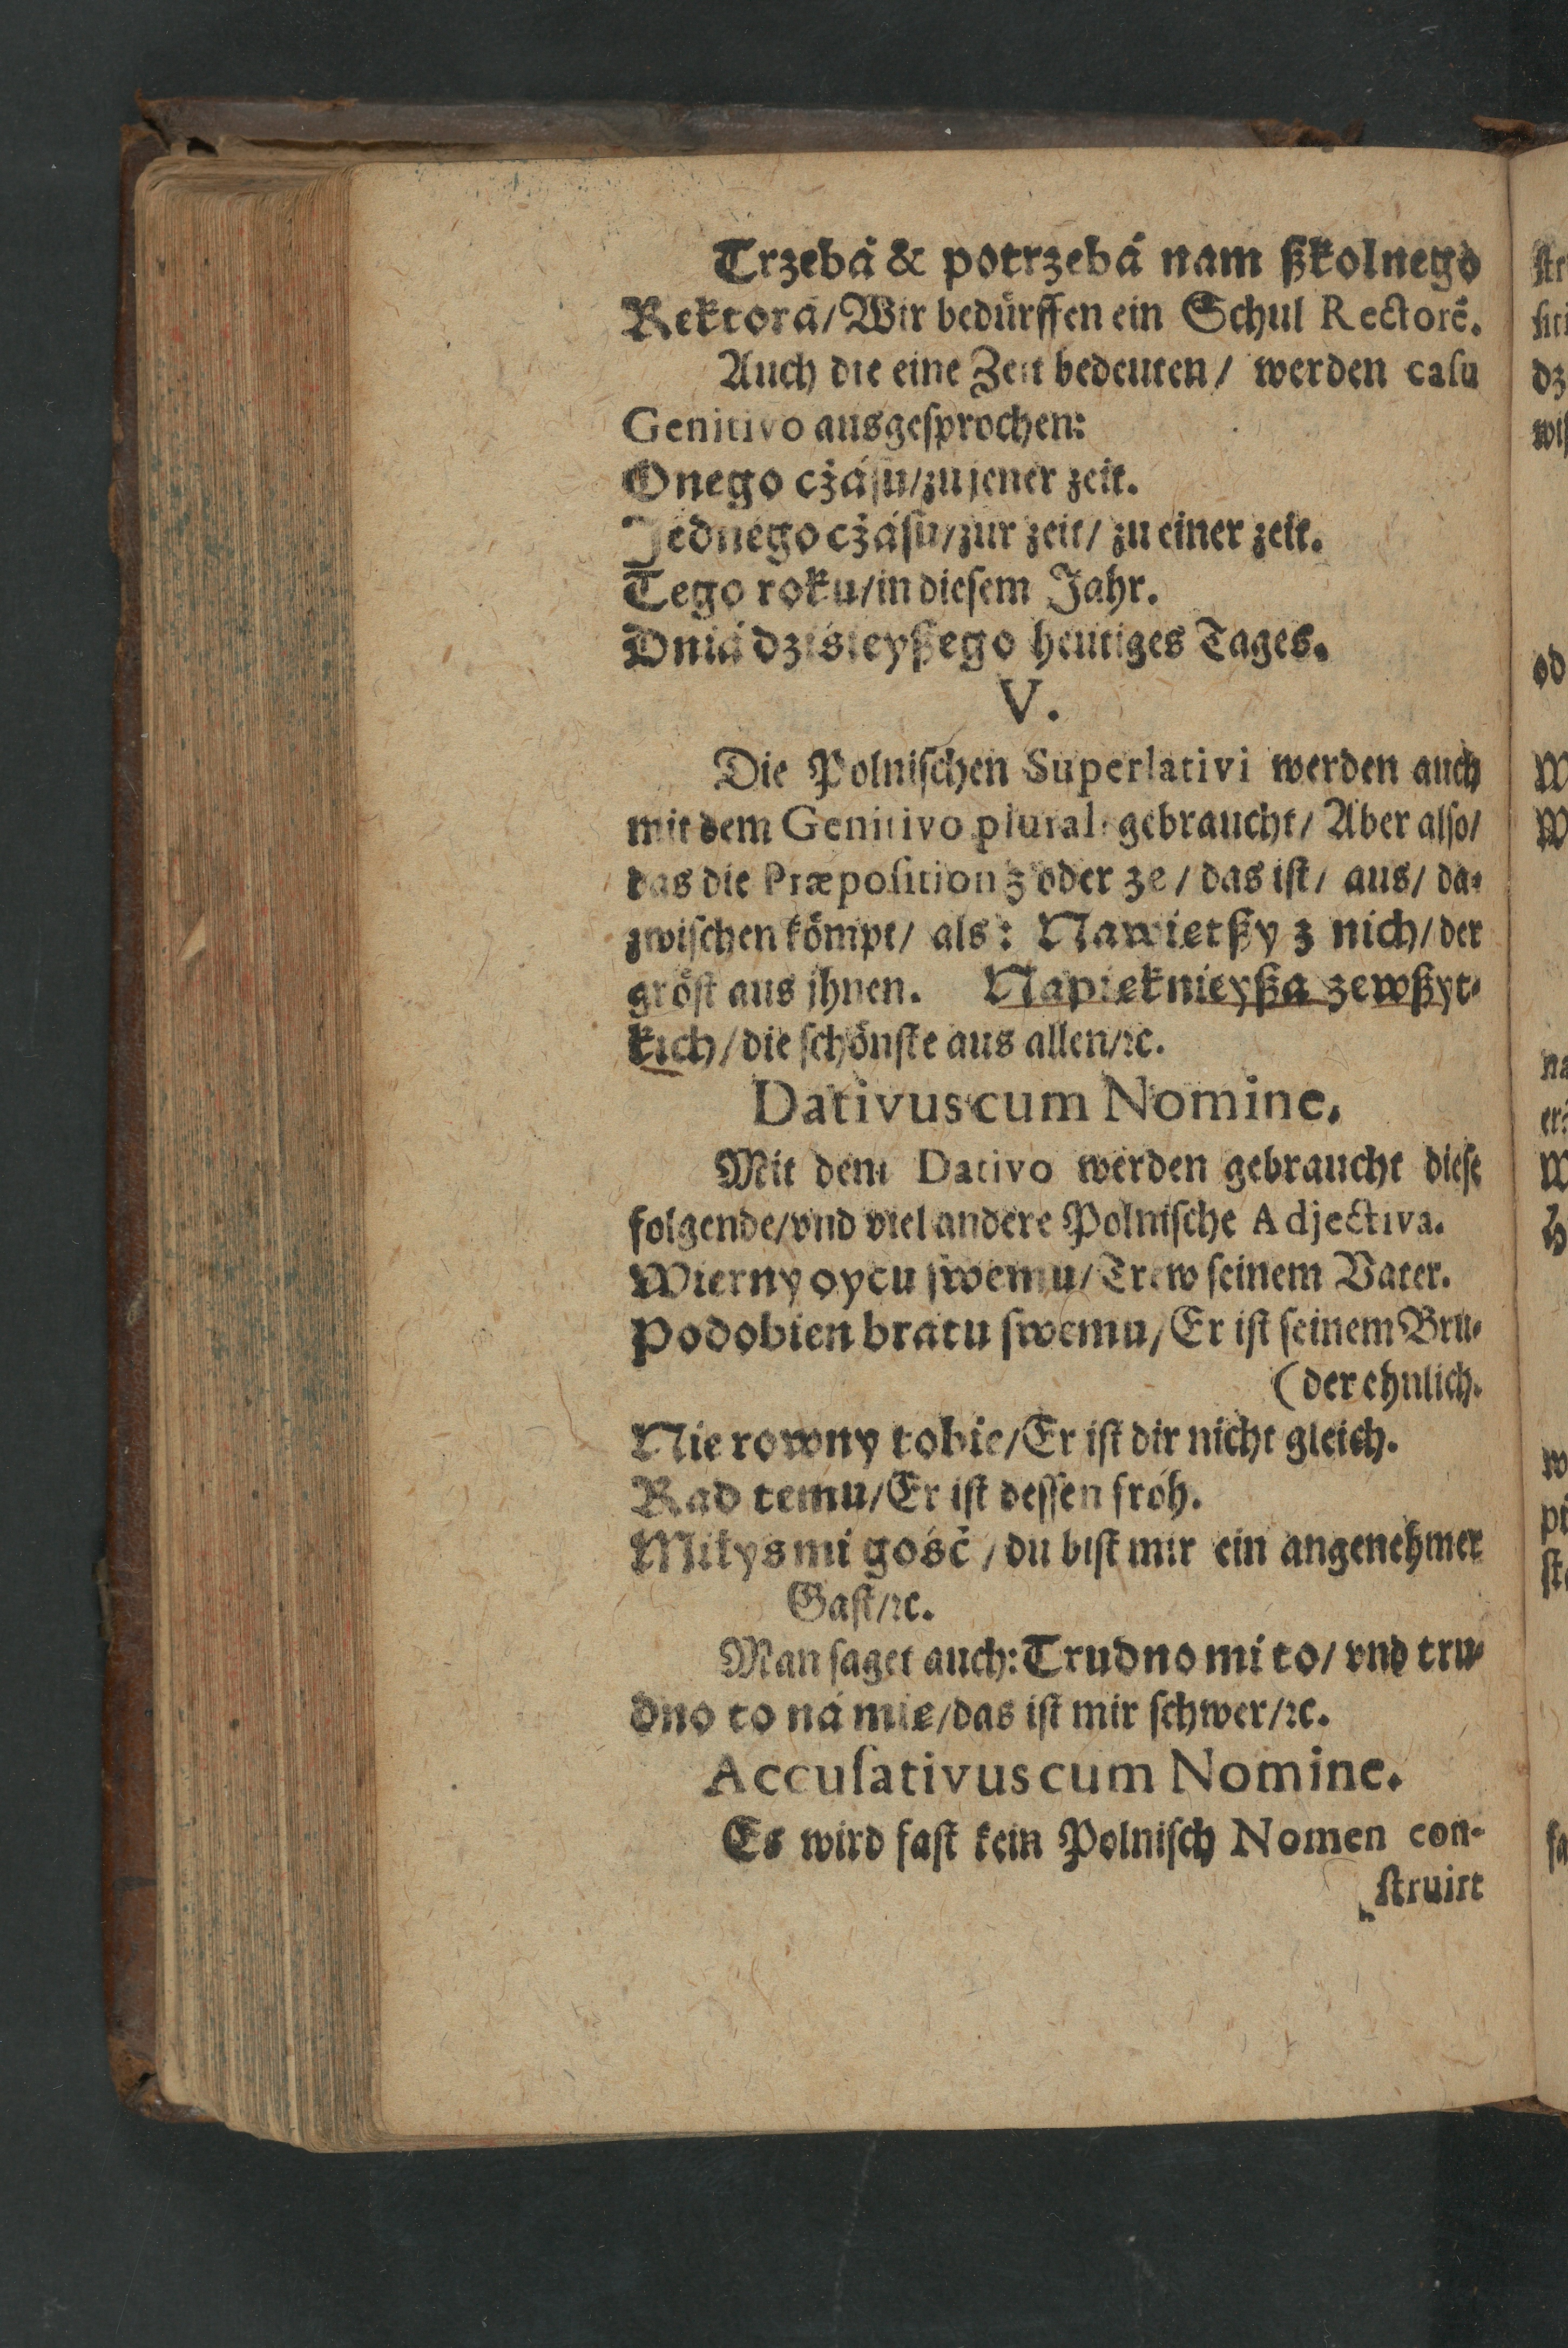 Trzebá & potrzebá nam ßkolnego
Rektorá/ Wir bedürffen ein Schul Rectorē.
Auch die eine Zeit bedeuten/ werden caſu
Genitivo ausgeſprochen:
Onego cżáſu/ zu jener zeit.
Jednego cżáſu/ zur zeit/ zu einer zeit.
Tego roku/ in dieſem Jahr.
Dniá dziśieyßego heutiges Tages.
V.
Die Polniſchen Superlativi werden auch
mit dem Genitivo plural: gebraucht/ Aber alſo/
das die Præpoſition z oder ze/ das iſt/ aus/ da-
zwiſchen kömpt/ als: Nawietßy z nich/ der
gröſt aus jhnen. Napieknieyßa zewßyt-
kich/ die ſchönſte aus allen/ ꝛc.
Dativus cum Nomine.
Mit dem Dativo werden gebraucht dieſe
folgende/ vnd viel andere Polniſche Adjectiva.
Wierny oycu ſwemu/ Trew ſeinem Vater.
Podobien bratu ſwemu/ Er iſt ſeinem Bru-
(der ehnlich.
Nie rowny tobie/ Er iſt dir nicht gleich.
Rad temu/ Er iſt deſſen froh.
Miłyś mi gość/ du biſt mir ein angenehmer
Gaſt/ ꝛc.
Man ſaget auch: Trudno mi to/ vnd tru-
dno to ná mie/ das iſt mir ſchwer/ ꝛc.
Accuſativus cum Nomine.
Es wird faſt kein Polniſch Nomen con-
ſtruirt